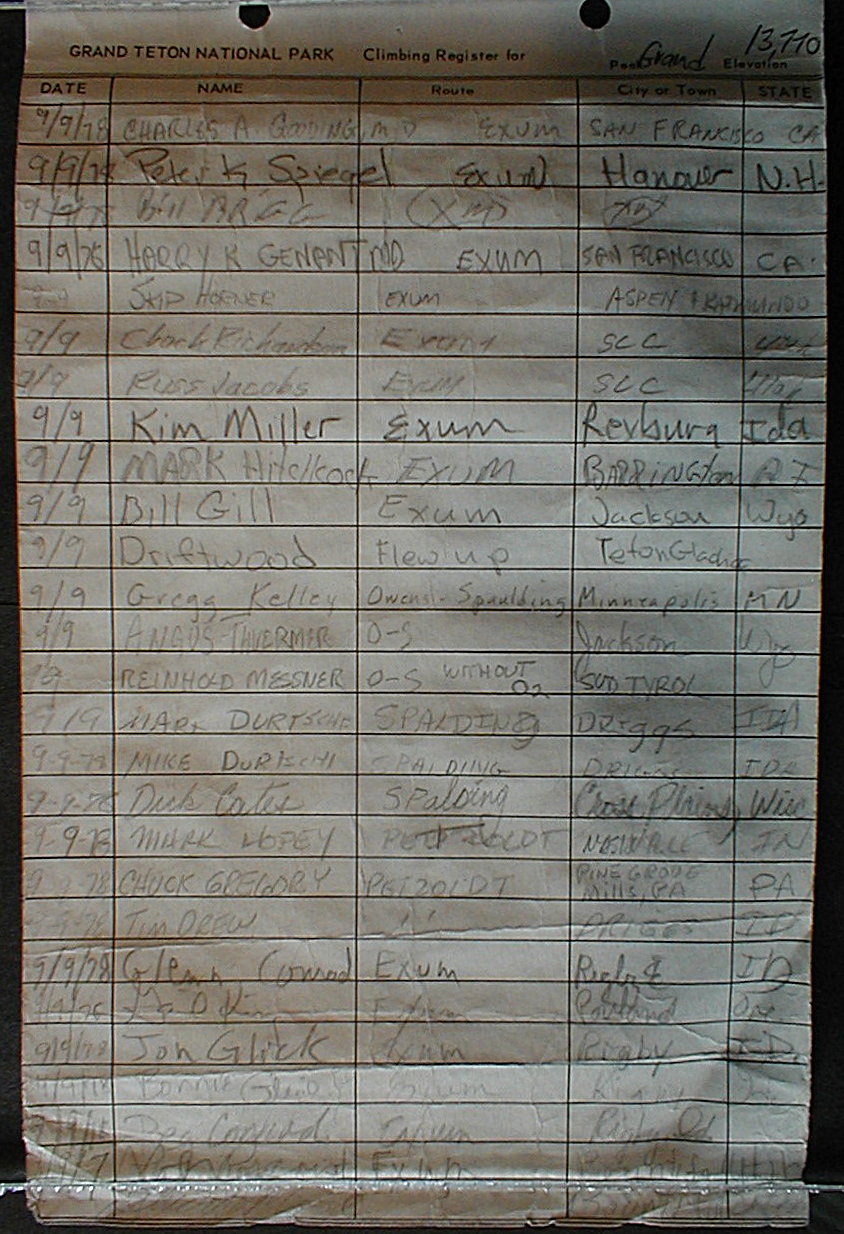 GRAND TETON NATIONAL PARK Climbing Register for Peak Grand Elevation 13,770
DATE NAME Route City or Town STATE
9/9/78 CHARLES A. GOODING, M D EXUM SAN FRANCISCO CA
9/9/78 Peter K Spiegel Exum Hanover N.H.
Bill
9/9/78 HARRY K GENANT MD EXUM SAN FRANCISCO CA.
SKIP HORNER EXUM ASPEN
9/9 Chuck Richardson Exum SLC Utah
9/9 Russ Jacobs Exum SLC Utah
9/9 Kim Miller Exum Rexburg Ida
9/9 MARK Hitchcock EXUM BARRINGton RI
9/9 Bill Gill Exum Jackson Wyo
9/9 Driftwood Flew up Teton Glacier
9/9 Gregg Kelley Owens-Spaulding Minneapolis MN
9/9 ANGUS THUERMER O-S Jackson Wyo
REINHOLD MESSNER O-S WITHOUT O2 SUD TYROL
9/9 MARK DURTSCHI SPALDING DRIggs IDA
9-9-78 MIKE DURTSCHI SPALDING DRIGGS IDA
9-9-78 Dick Cates Spalding Cross Plains, Wisc
9-9-78 MARK PETZOLDT IN
9-9-78 CHUCK GREGORY PETZOLDT PINE GROVE Mills, PA PA
9-9-78 TIM DREW " DRIGGS ID
9/9/78 Glenn Conrad Exum Rigby ID
9/9/78 Exum Portland Ore
9/9/78 Jon Glick Exum Rigby ID.
9/9/78 Bonnie Exum
9/9/78 Conrad Exum Rigby Id
Exum